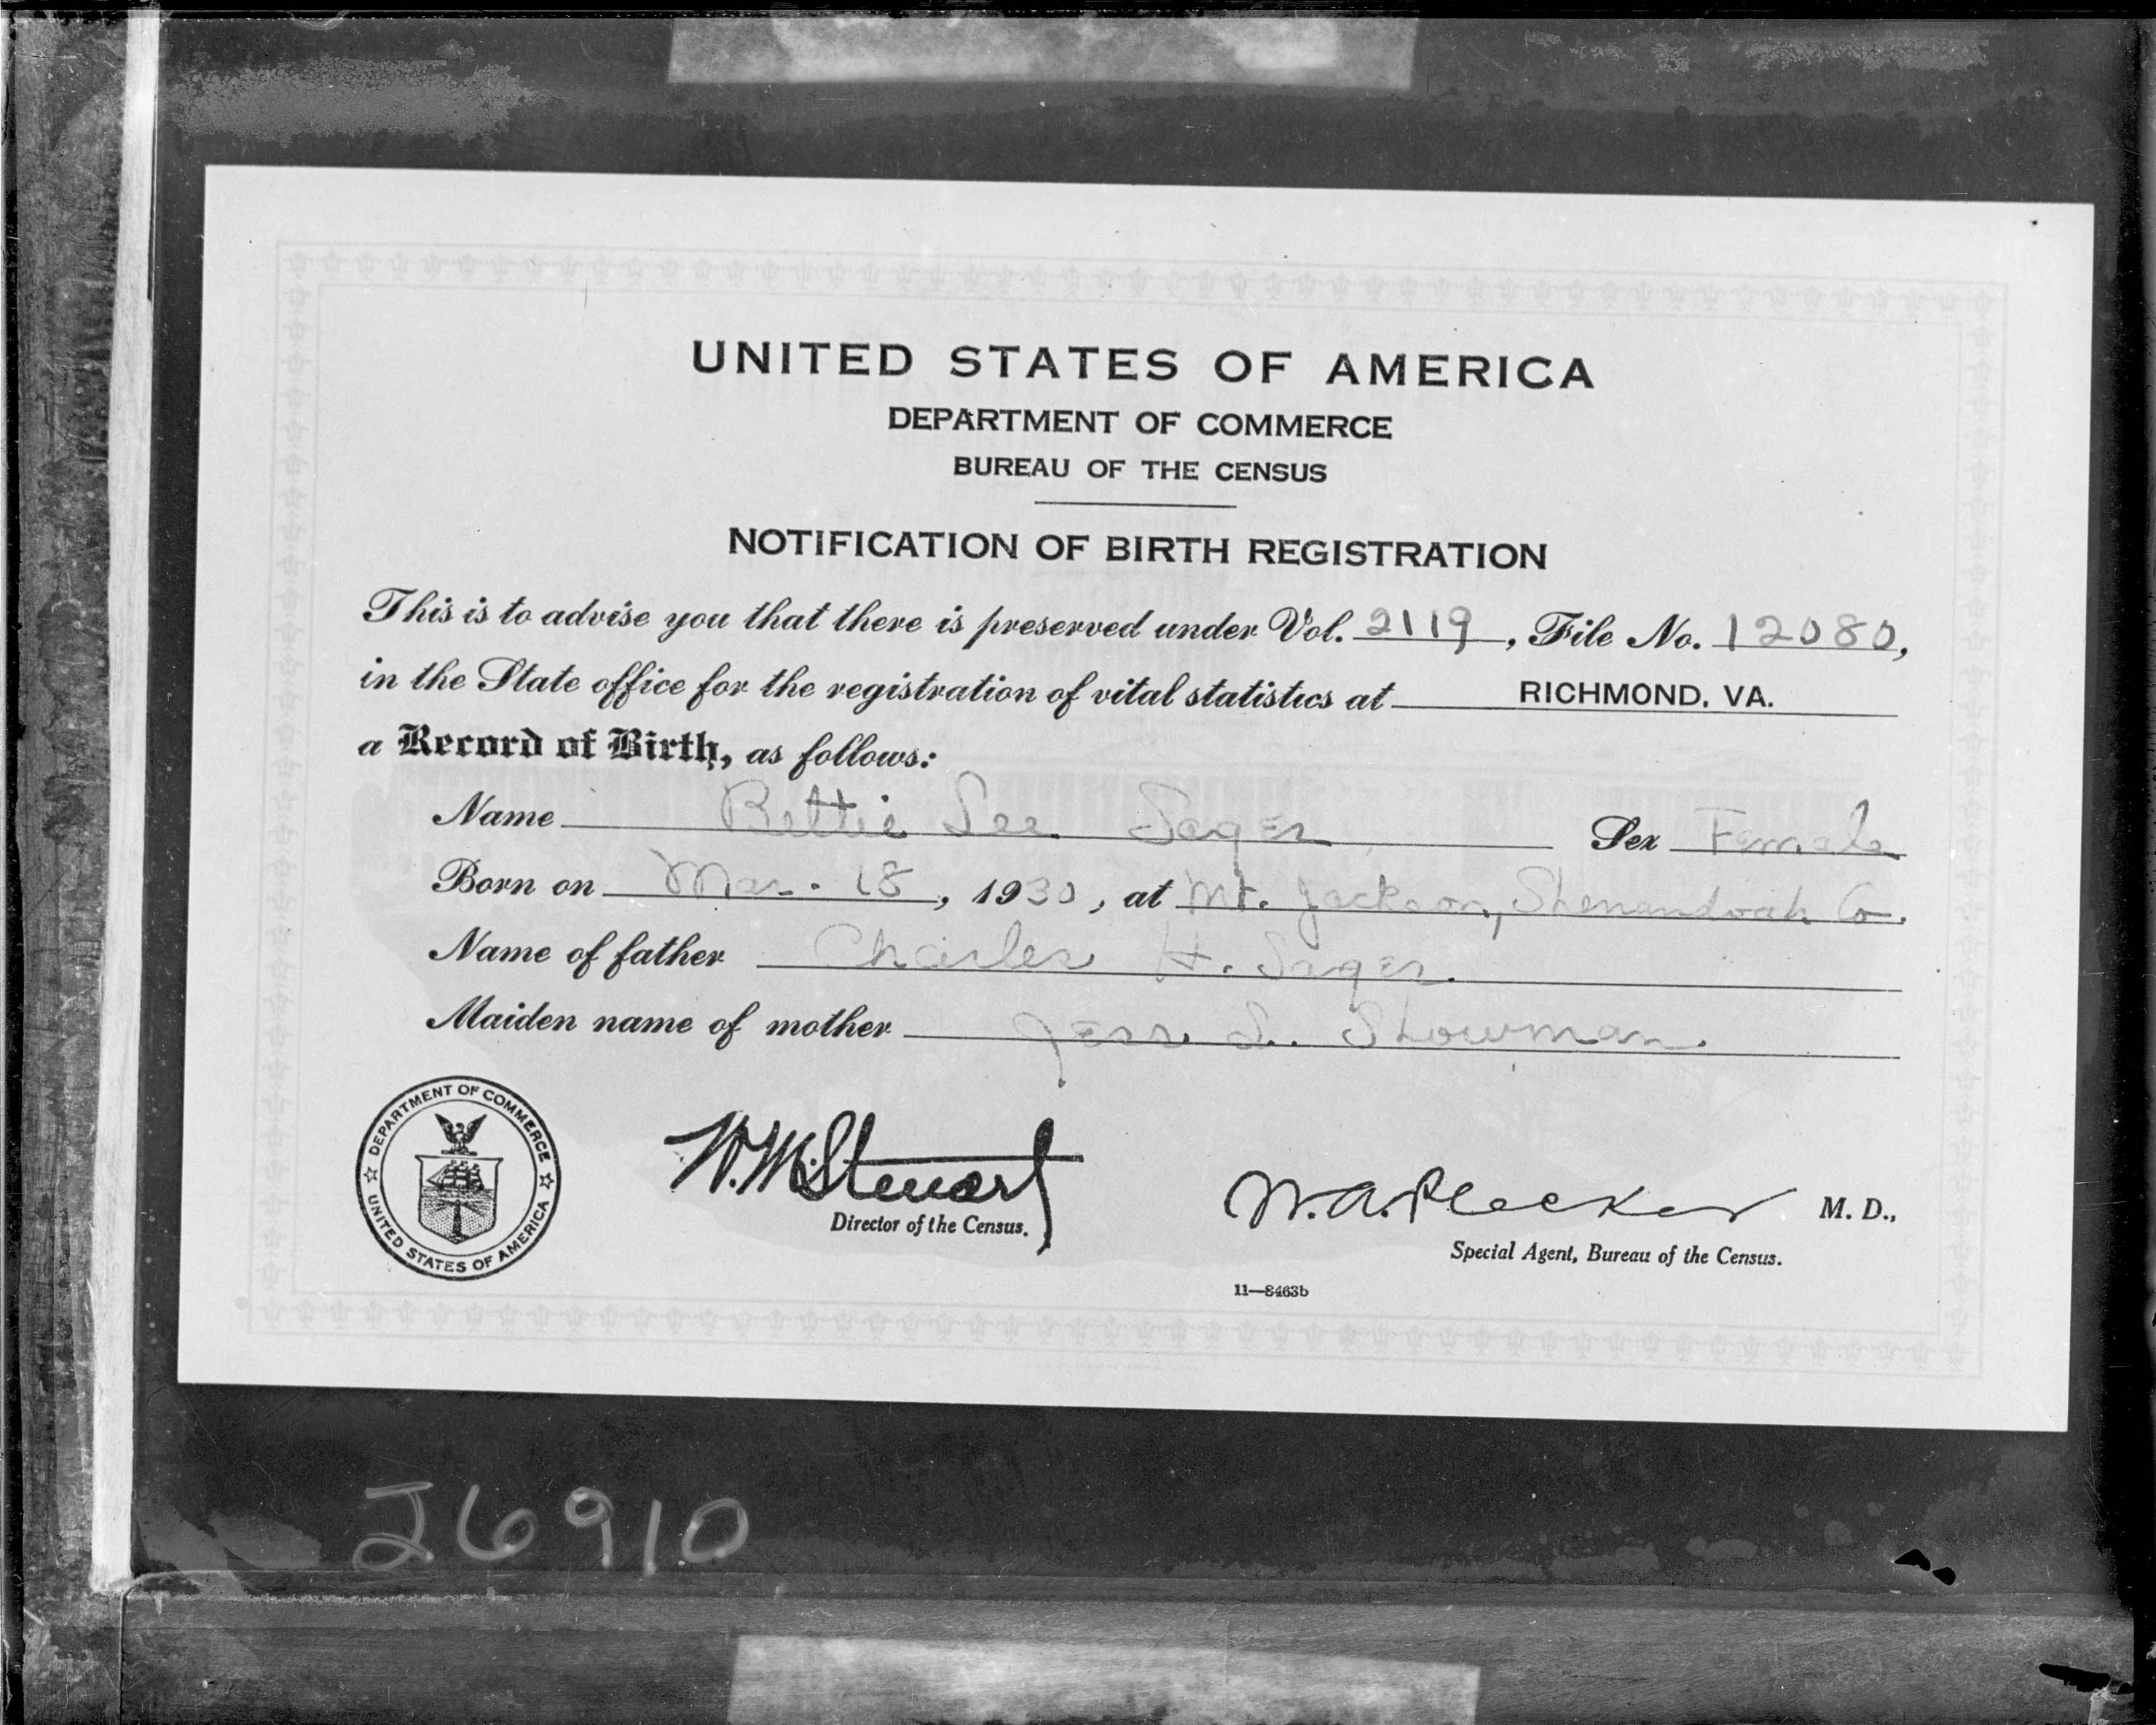 UNITED STATES OF AMERICA
DEPARTMENT OF COMMERCE
BUREAU OF THE CENSUS
NOTIFICATION OF BIRTH REGISTRATION
This is to advise you that there is preserved under Vol. 2119, File No. 12080,
in the State office for the registration of vital statistics at RICHMOND, VA.
a Record of Birth, as follows:
Name Bettie Lee Sager Sex Female
Born on Mar. 18, 1930, at Mt. Jackson, Shenandoah Co.
Name of father Charles H. Sager.
Maiden name of mother Jess L. Showman.
DEPARTMENT OF COMMERCE
UNITED STATES OF AMERICA
W. M. Steuart
Director of the Census.
W. A. Plecker M. D.,
Special Agent, Bureau of the Census.
11—8463b
26910